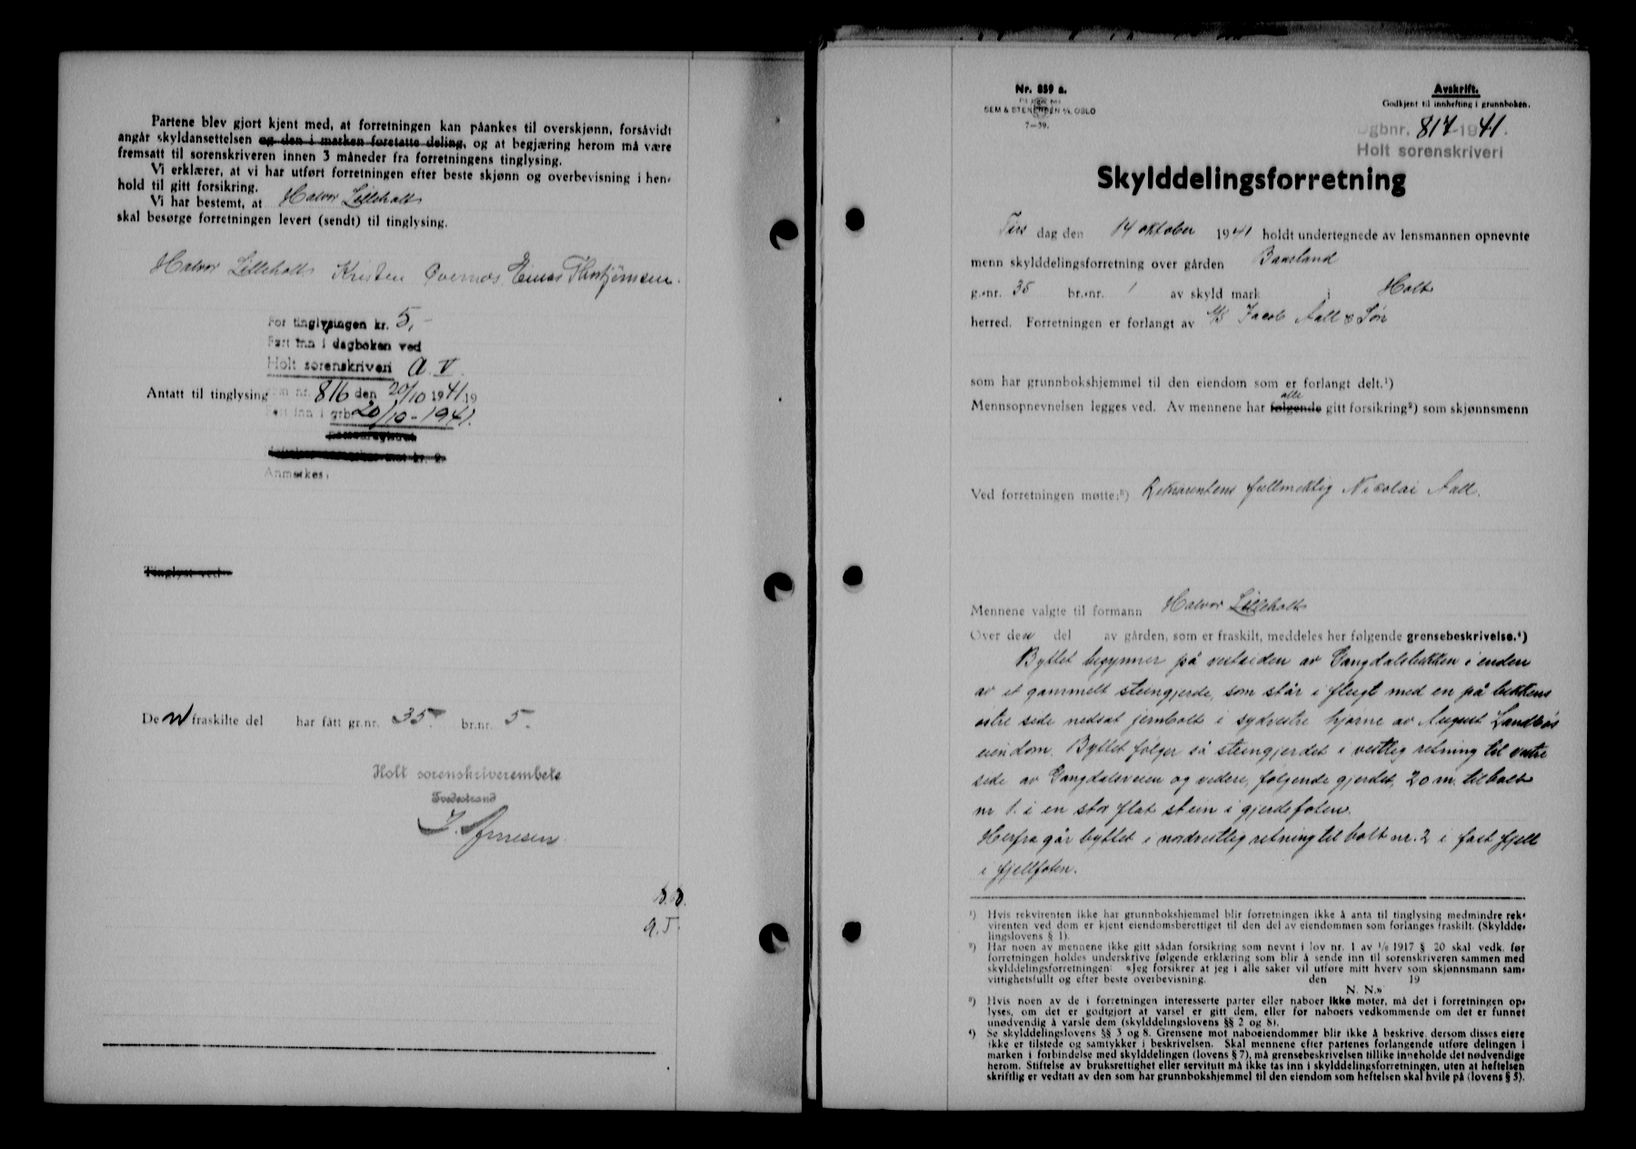 Partene blev gjort kjent med, at forretningen kan påankes til overskjønn, forsåvidt
angår skyldansettelsen og den i marken foretatte deling, og at begjæring herom må være
fremsatt til sorenskriveren innen 3 måneder fra forretningens tinglysing.
Vi erklærer, at vi har utført forretningen efter beste skjønn og overbevisning i hen-
hold til gitt forsikring.
Vi har bestemt, at Halvor Lilleholt
skal besørge forretningen levert (sendt) til tinglysing.
Halvor Lilleholt Kristen Overnes Einar
For tinglysingen kr. 5,-
Ført inn i dagboken ved
Holt sorenskriveri
Antatt til tinglysing som nr. 816 den 20/10 1941 19
Ført inn i grb. 20/10-1941.
Anmerkes:
Tinglyst ved
Den fraskilte del har fått gr.nr. 35 br.nr. 5.
Holt sorenskriverembete
Tvedestrand
Nr. 859 a.
SEM & STENERSEN A/S, OSLO
7-39.
Avskrift.
Godkjent til innhefting i grunnboken.
Dgbnr. 817-1941.
Holt sorenskriveri
Skylddelingsforretning
Tirs dag den 14 oktober 1941 holdt undertegnede av lensmannen opnevnte
menn skylddelingsforretning over gården Baasland
g.-nr. 35 br.-nr. 1 av skyld mark i Holt
herred. Forretningen er forlangt av A/S Jacob Aall & Søn
som har grunnbokshjemmel til den eiendom som er forlangt delt.¹)
alle
Mennsopnevnelsen legges ved. Av mennene har følgende gitt forsikring²) som skjønnsmenn
Ved forretningen møtte:³) Rekvirentens fullmektig Nicolai Aall.
Mennene valgte til formann Halvor Lilleholt
Over den del av gården, som er fraskilt, meddeles her følgende grensebeskrivelse.⁴)
Byttet begynner på vestsiden av Gangdalsbekken i enden
av et gammelt steingjerde, som står i flugt med en på bekkens
østre side nedsat jernbolt i sydvestre hjørne av August Landbøs
eiendom. Byttet følger så steingjerdet i vestlig retning til østre
side av Gangdalsveien og videre, følgende gjerdet, 20 m. til bolt
nr 1. i en stor flat stein i gjerdefoten.
Herfra går byttet i nordvestlig retning til bolt nr. 2 i fast fjell
i fjellfoten.
¹) Hvis rekvirenten ikke har grunnbokshjemmel blir forretningen ikke å anta til tinglysing medmindre rek-
virenten ved dom er kjent eiendomsberettiget til den del av eiendommen som forlanges fraskilt. (Skyldde-
lingslovens § 1).
²) Har noen av mennene ikke gitt sådan forsikring som nevnt i lov nr. 1 av 1/6 1917 § 20 skal vedk. før
forretningen holdes underskrive følgende erklæring som blir å sende inn til sorenskriveren sammen med
skylddelingsforretningen: «Jeg forsikrer at jeg i alle saker vil utføre mitt hverv som skjønnsmann sam-
vittighetsfullt og efter beste overbevisning. den 19
N. N.»
³) Hvis noen av de i forretningen interesserte parter eller naboer ikke møter, må det i forretningen op-
lyses, om det er godtgjort at varsel er gitt dem, eller for naboers vedkommende om det er funnet
unødvendig å varsle dem (skylddelingslovens §§ 2 og 8).
⁴) Se skylddelingslovens §§ 3 og 8. Grensene mot naboeiendommer blir ikke å beskrive, dersom disses eiere
ikke er tilstede og samtykker i beskrivelsen. Skal mennene efter partenes forlangende utføre delingen i
marken i forbindelse med skylddelingen (lovens § 7), må grensebeskrivelsen tillike inneholde det nødvendige
herom. Stiftelse av bruksrettighet eller servitutt må ikke tas inn i skylddelingsforretningen, uten at heftelsen
skriftlig er vedtatt av den som har grunnbokshjemmel til den eiendom som heftelsen skal hvile på (lovens § 5).